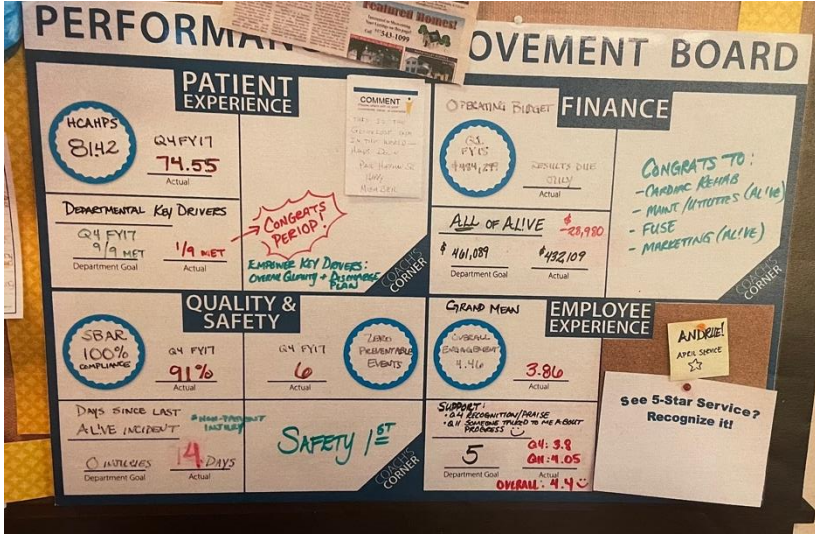 PERFORMAN
OVEMENT BOARD
Featured Homes!
343-1099
PATIENT
EXPERIENCE
HCAHPS
81.42
Q4 FY17
74.55
Actual
DEPARTMENTAL KEY DRIVERS
Q4 FY17
9/9 MET
Department Goal
1/9 MET
Actual
COMMENT
CONGRATS
PERIOP!
KEY DRIVERS:
OVERALL QUALITY + DISCHARGE
PLAN
COACH'S
CORNER
FINANCE
OPERATING BUDGET
Q1
FY18
RESULTS DUE
JULY
Actual
ALL OF AL!VE
$
-28,980
$ 461,089
Department Goal
$432,109
Actual
CONGRATS TO:
- CARDIAC REHAB
- MAINT/UTILITIES (AL!VE)
- FUSE
- MARKETING (AL!VE)
COACH'S
CORNER
QUALITY &
SAFETY
SBAR
100%
COMPLIANCE
Q4 FY17
91%
Actual
Q4 FY17
6
Actual
ZERO
PREVENTABLE
EVENTS
DAYS SINCE LAST
AL!VE INCIDENT
* NON-PATIENT
INJURY
0 INJURIES
Department Goal
14 DAYS
Actual
SAFETY 1ST
COACH'S
CORNER
EMPLOYEE
EXPERIENCE
GRAND MEAN
OVERALL
ENGAGEMENT
4.46
3.86
Actual
SUPPORT:
• Q4 RECOGNITION/PRAISE
• Q11 SOMEONE TALKED TO ME ABOUT
PROGRESS
5
Department Goal
Q4: 3.8
Q11: 4.05
Actual
OVERALL: 4.4
APRIL SERVICE
See 5-Star Service?
Recognize it!